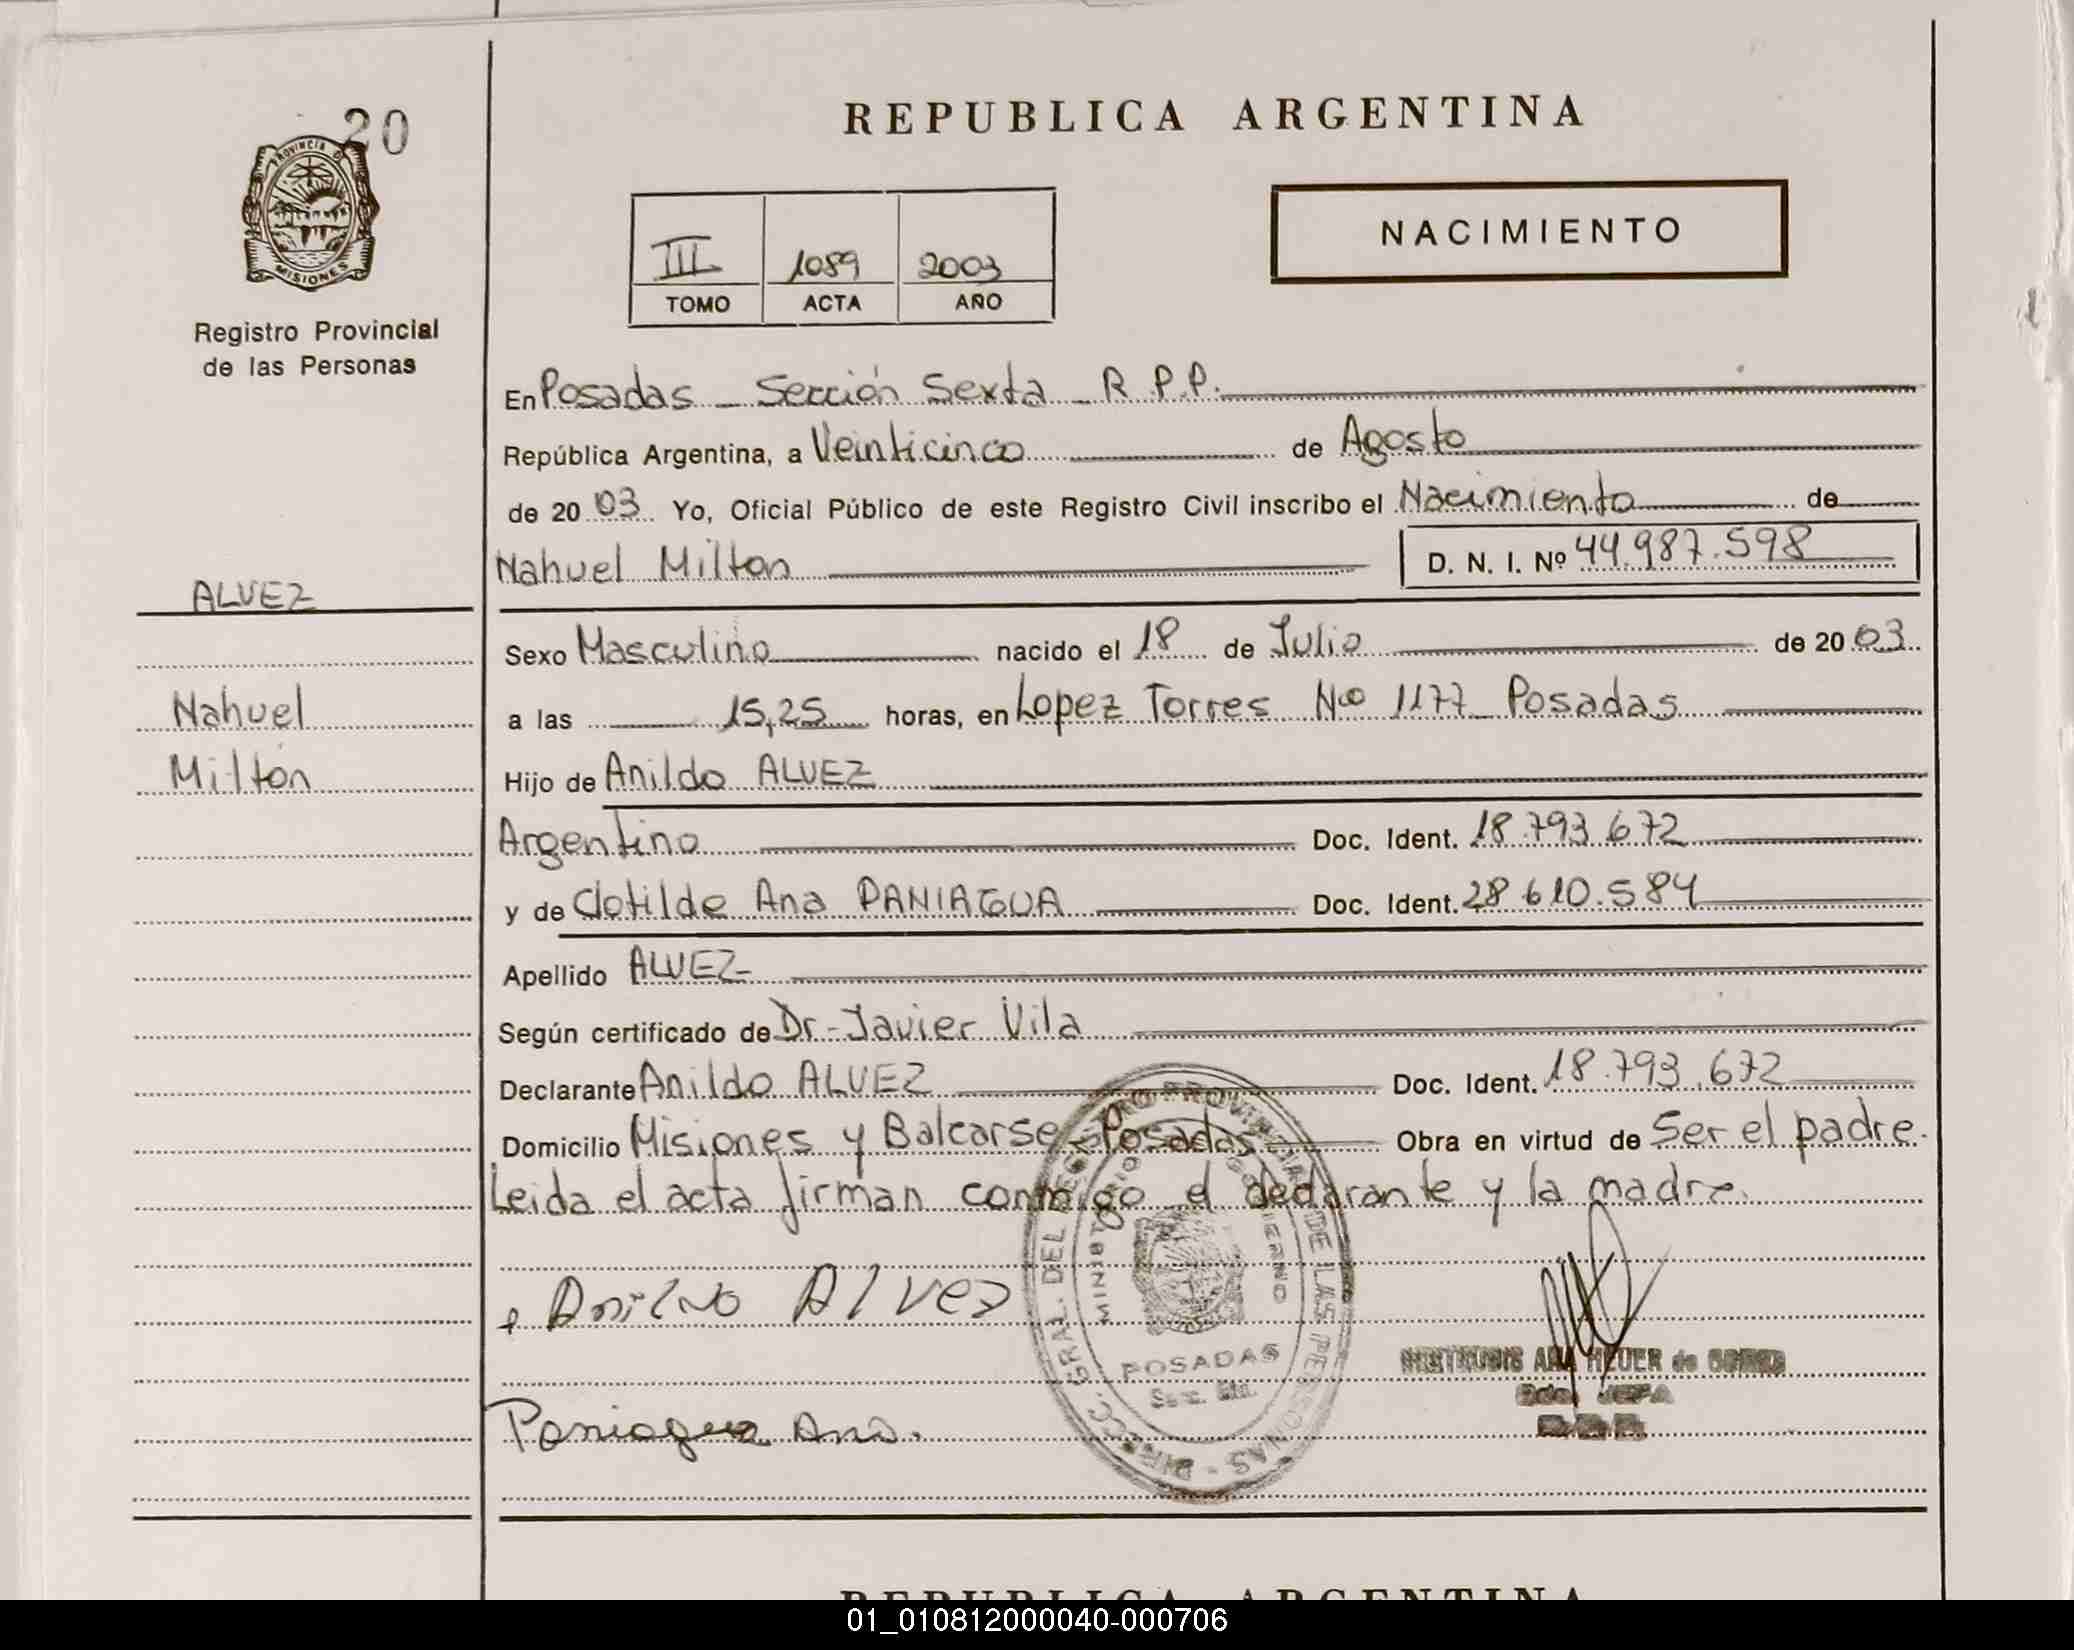 20
PROVINCIA DE
MISIONES
Registro Provincial
de las Personas
REPUBLICA ARGENTINA
NACIMIENTO
III 1089 2003
TOMO ACTA AÑO
En Posadas - Sección Sexta - R.P.P.
República Argentina, a Veinticinco de Agosto
de 2003 Yo, Oficial Público de este Registro Civil inscribo el Nacimiento de
Nahuel Milton D. N. I. Nº 44.987.598
ALVEZ
Nahuel
Milton
Sexo Masculino nacido el 18 de Julio de 2003
a las 15,25 horas, en Lopez Torres Nº 1177 Posadas
Hijo de Anildo ALVEZ
Argentino Doc. Ident. 18.793.672
y de Clotilde Ana PANIAGUA Doc. Ident. 28.610.584
Apellido ALVEZ
Según certificado de Dr. Javier Vila
Declarante Anildo ALVEZ Doc. Ident. 18.793.672
Domicilio Misiones y Balcarse - Posadas Obra en virtud de Ser el padre.
Leida el acta firman conmigo el declarante y la madre.
Anildo Alvez
Paniagua Ana.
DIRECC. GRAL. DEL REGISTRO PROVINCIAL DE LAS PERSONAS
MINISTERIO GOBIERNO
POSADAS
ANA HEUER de
JEFA
REPUBLICA ARGENTINA
01_010812000040-000706